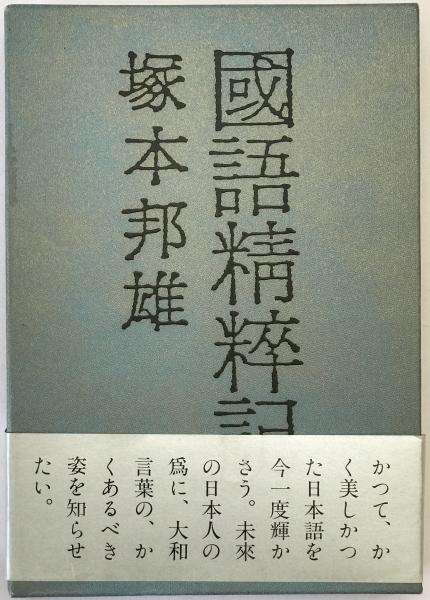 國語精粹記
塚本邦雄
かつて、か
く美しかつ
た日本語を
今一度輝か
さう。未來
の日本人の
爲に、大和
言葉の、か
くあるべき
姿を知らせ
たい。